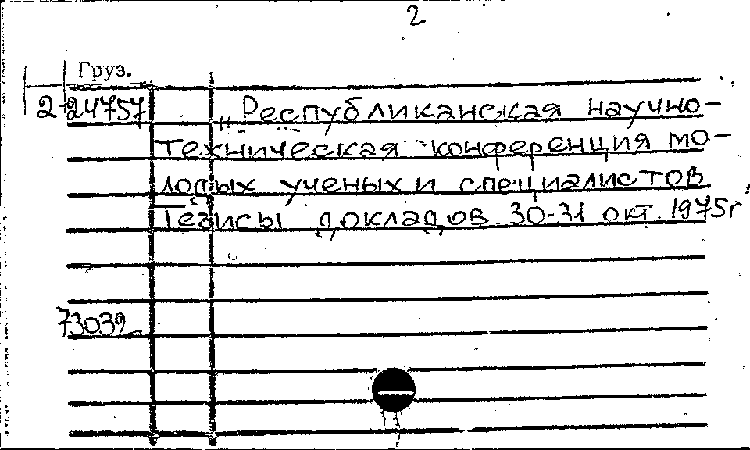 2
Груз.
2-24757 „Республиканская научно-
техническая конференция мо-
лодых ученых и специалистов
Тезисы докладов 30-31 окт. 1975г,
73039